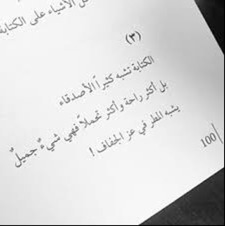 الأشياء على الكتابة
(٣)
الكتابة تشبه كثيراً الأصدقاء
بل أكثر راحة وأكثر تحملاً فهي شيءٌ جميلٌ
يشبه المطر في عز الجفاف !
100